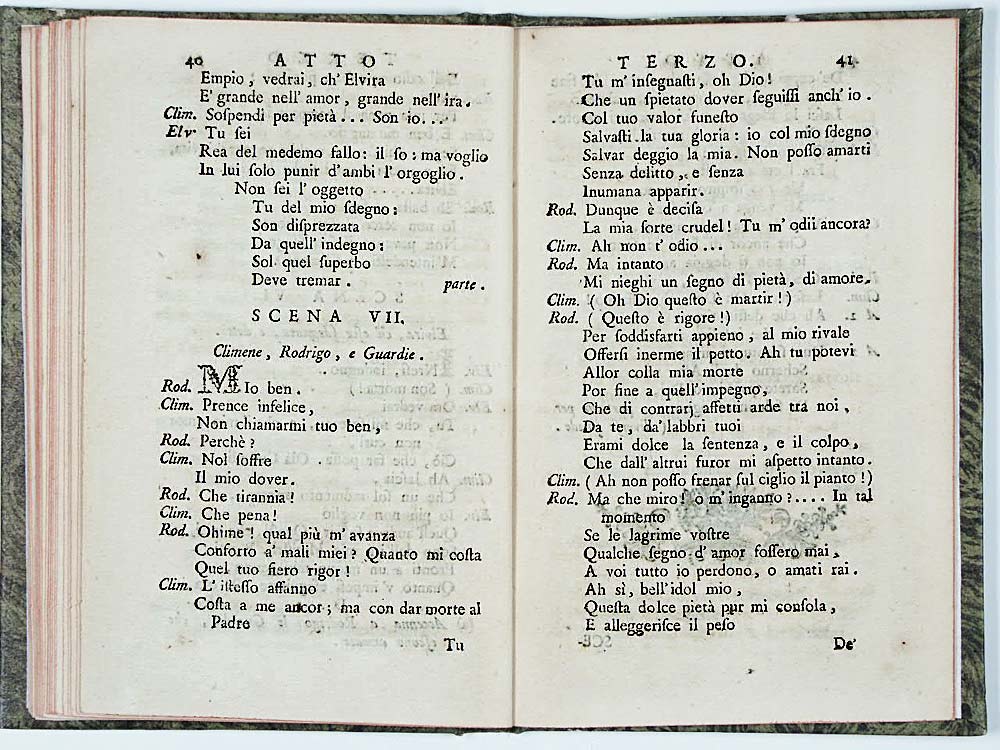 40 ATTO
Empio, vedrai, ch' Elvira
E' grande nell' amor, grande nell' ira.
Clim. Soſpendi per pietà... Son' io...
Elv Tu ſei
Rea del medemo fallo: il ſo: ma voglio
In lui ſolo punir d'ambi l' orgoglio.
Non ſei l' oggetto
Tu del mio ſdegno:
Son diſprezzata
Da quell' indegno:
Sol quel ſuperbo
Deve tremar. parte.
SCENA VII.
Climene, Rodrigo, e Guardie.
Rod. MIo ben.
Clim. Prence infelice,
Non chiamarmi tuo ben,
Rod. Perchè?
Clim. Nol ſoffre
Il mio dover.
Rod. Che tirannia!
Clim. Che pena!
Rod. Ohime! qual più m' avanza
Conforto a' mali miei? Quanto mi coſta
Quel tuo fiero rigor!
Clim. L' iſteſſo affanno
Coſta a me ancor; ma con dar morte al
Padre
Tu
TERZO. 41
Tu m' inſegnaſti, oh Dio!
Che un ſpietato dover ſeguiſſi anch' io.
Col tuo valor funeſto
Salvaſti la tua gloria: io col mio ſdegno
Salvar deggio la mia. Non poſſo amarti
Senza delitto, e ſenza
Inumana apparir.
Rod. Dunque è deciſa
La mia ſorte crudel! Tu m' odii ancora?
Clim. Ah non t' odio...
Rod. Ma intanto
Mi nieghi un ſegno di pietà, di amore.
Clim. (Oh Dio queſto è martir!)
Rod. (Queſto è rigore!)
Per ſoddisfarti appieno, al mio rivale
Offerſi inerme il petto. Ah tu potevi
Allor colla mia morte
Por fine a quell' impegno,
Che di contrarj affetti arde tra noi,
Da te, da' labbri tuoi
Erami dolce la ſentenza, e il colpo,
Che dall' altrui furor mi aſpetto intanto.
Clim. (Ah non poſſo frenar ſul ciglio il pianto!)
Rod. Ma che miro! o m' inganno?.... In tal
momento
Se le lagrime voſtre
Qualche ſegno d' amor foſſero mai,
A voi tutto io perdono, o amati rai.
Ah sì, bell' idol mio,
Queſta dolce pietà pur mi conſola,
E alleggeriſce il peſo
De'